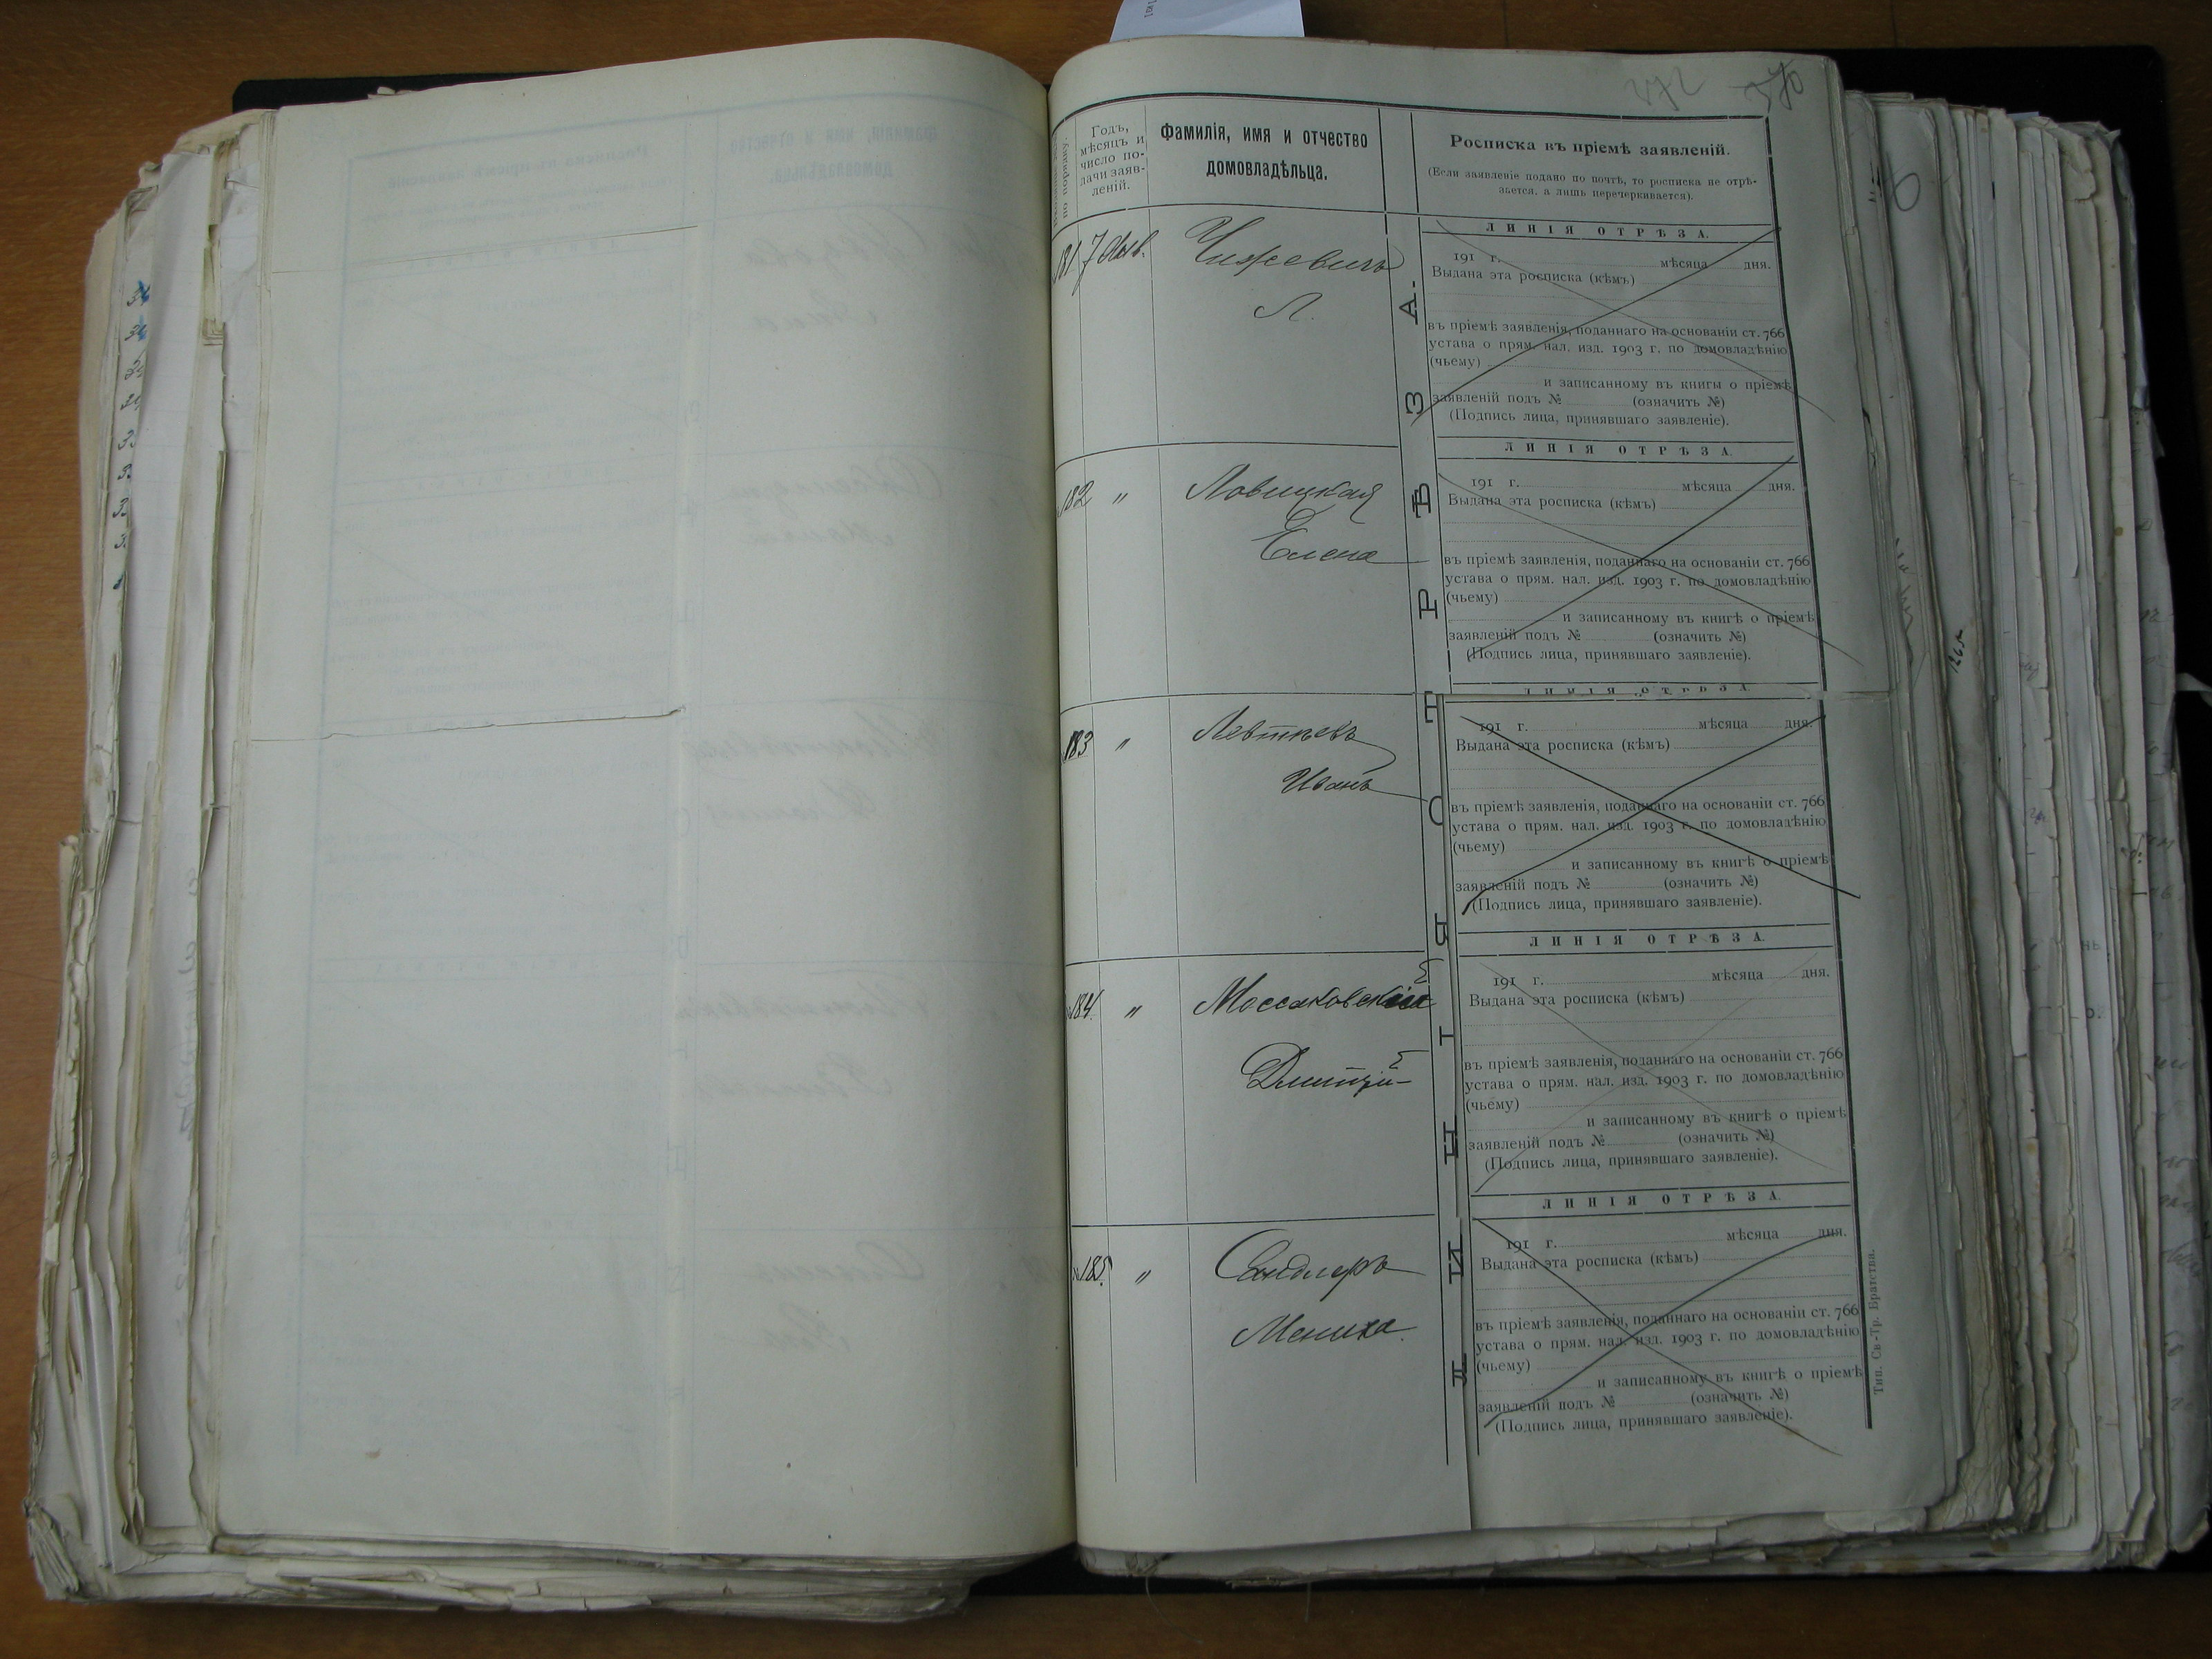 272 370
по порядку.
Годъ,
мѣсяцъ и
число по-
дачи заяв-
леній.
Фамилія, имя и отчество
домовладѣльца.
Росписка въ пріемѣ заявленій.
(Если заявленіе подано по почтѣ, то росписка не отрѣ-
зается, а лишь перечеркивается).
ЛИНІЯ ОТРѢЗА.
181 7 Янв. Чижевичъ
Л.
ЛИНІЯ ОТРѢЗА.
191 г. мѣсяца дня.
Выдана эта росписка (кѣмъ)
въ пріемѣ заявленія, поданнаго на основаніи ст. 766
устава о прям. нал. изд. 1903 г. по домовладѣнію
(чьему)
и записанному въ книгы о пріемѣ
заявленій подъ № (означить №)
(Подпись лица, принявшаго заявленіе).
182 " Ловицкая
Елена
ЛИНІЯ ОТРѢЗА.
191 г. мѣсяца дня.
Выдана эта росписка (кѣмъ)
въ пріемѣ заявленія, поданнаго на основаніи ст. 766
устава о прям. нал. изд. 1903 г. по домовладѣнію
(чьему)
и записанному въ книгѣ о пріемѣ
заявленій подъ № (означить №)
(Подпись лица, принявшаго заявленіе).
183 " Левтѣевъ
Иванъ
ЛИНІЯ ОТРѢЗА.
191 г. мѣсяца дня.
Выдана эта росписка (кѣмъ)
въ пріемѣ заявленія, поданнаго на основаніи ст. 766
устава о прям. нал. изд. 1903 г. по домовладѣнію
(чьему)
и записанному въ книгѣ о пріемѣ
заявленій подъ № (означить №)
(Подпись лица, принявшаго заявленіе).
184. " Моссаковскій
Дмитрій
ЛИНІЯ ОТРѢЗА.
191 г. мѣсяца дня.
Выдана эта росписка (кѣмъ)
въ пріемѣ заявленія, поданнаго на основаніи ст. 766
устава о прям. нал. изд. 1903 г. по домовладѣнію
(чьему)
и записанному въ книгѣ о пріемѣ
заявленій подъ № (означить №)
(Подпись лица, принявшаго заявленіе).
185. " Сандлеръ
Мениха.
ЛИНІЯ ОТРѢЗА.
191 г. мѣсяца дня.
Выдана эта росписка (кѣмъ)
въ пріемѣ заявленія, поданнаго на основаніи ст. 766
устава о прям. нал. изд. 1903 г. по домовладѣнію
(чьему)
и записанному въ книгѣ о пріемѣ
заявленій подъ № (означить №)
(Подпись лица, принявшаго заявленіе).
Тип. Св.-Тр. Братства.
1265